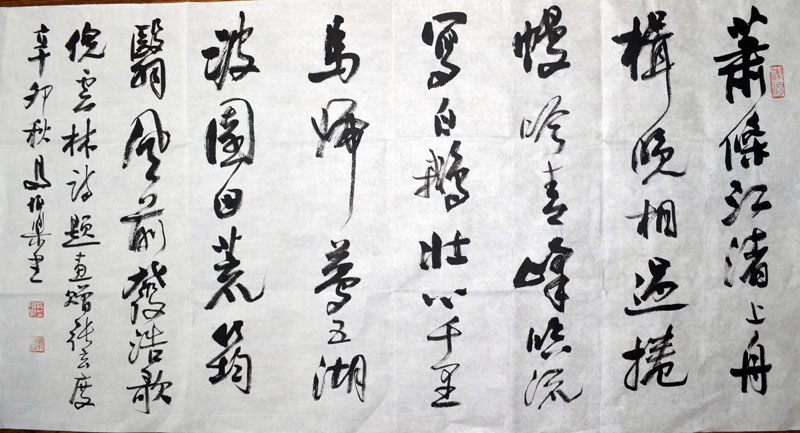 蕭條江渚上舟
楫晚相過捲
幔吟青峰臨流
寫白鵝壯心千里
馬歸夢五湖
波園田荒筠
翳風前發浩歌
倪雲林詩題畫贈張玄度
辛卯秋書